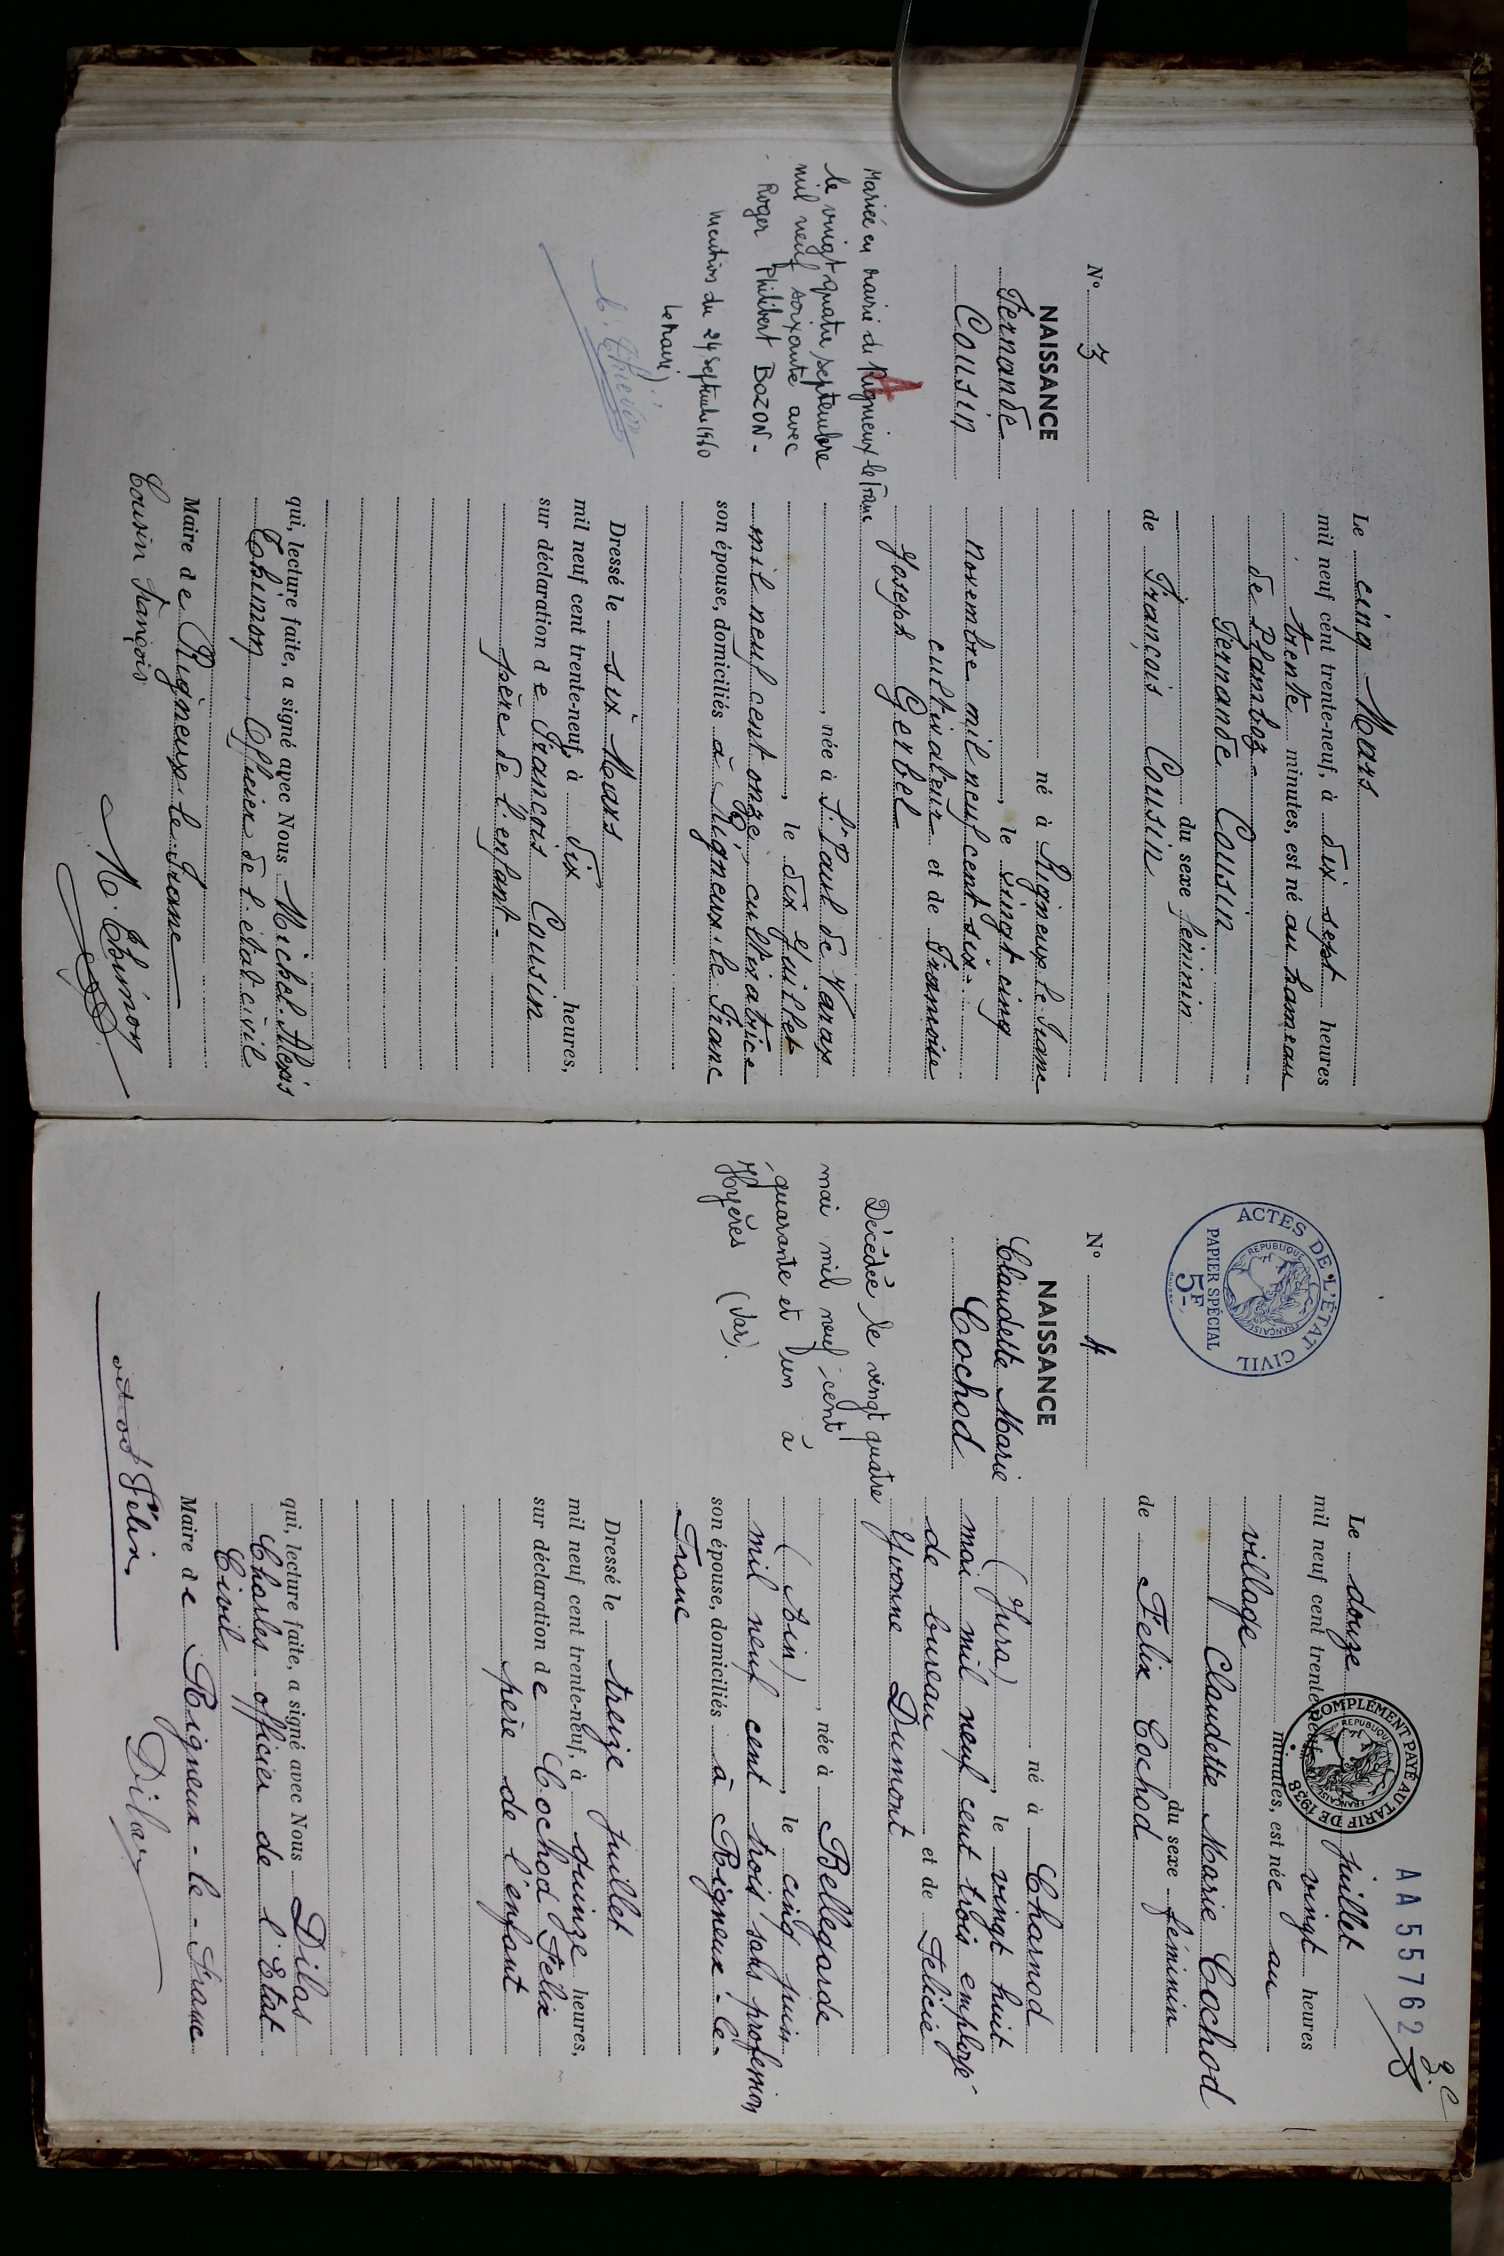 N° 3
NAISSANCE
Fernande
Cousin
Mariée en mairie de Rigneux-le-Franc
le vingt quatre septembre
mil neuf soixante avec
Roger Philibert BOZON-
mention du 24 septembre 1960
Le Maire
Le cinq Mars
mil neuf cent trente-neuf, à dix sept heures
trente minutes, est né au hameau
de Plamboz-
Fernande Cousin
du sexe féminin
de François Cousin
né à Rigneux le Franc
, le vingt cinq
novembre mil neuf cent six-
cultivateur et de Françoise
Joseph Gerbel
, née à St Paul de Varax
, le dix Juillet
mil neuf cent onze, cultivatrice
son épouse, domiciliés à Rigneux-le-Franc
Dressé le six Mars
mil neuf cent trente-neuf, à dix heures,
sur déclaration de François Cousin
père de l'enfant-
qui, lecture faite, a signé avec Nous Michel Alexis
Thinon, Officier de l'état civil
Maire de Rigneux-le-Franc
Cousin François
M. Thinon
ACTES DE L'ÉTAT CIVIL
RÉPUBLIQUE FRANÇAISE
PAPIER SPÉCIAL
5F
N° 4
NAISSANCE
Claudette Marie
Cochod
Décédée le vingt quatre
mai mil neuf cent
quarante et un à
Hyères (Var).
AA 55762
COMPLÉMENT PAYÉ AU TARIF DE 1938
RÉPUBLIQUE FRANÇAISE
Le douze juillet
mil neuf cent trente-neuf, à vingt heures
minutes, est née au
village
Claudette Marie Cochod
du sexe féminin
de Felix Cochod
né à Charnod
(Jura), le vingt huit
mai mil neuf cent trois employé
de bureau et de Felicie
Yvonne Dumont
, née à Bellegarde
(Ain), le cinq juin
mil neuf cent trois sans profession
son épouse, domiciliés à Rigneux-le-
Franc
Dressé le treize juillet
mil neuf cent trente-neuf, à quinze heures,
sur déclaration de Cochod Félix
père de l'enfant
qui, lecture faite, a signé avec Nous Dilas
Charles officier de l'Etat
Civil
Maire de Rigneux-le-Franc
Félix
Dilas